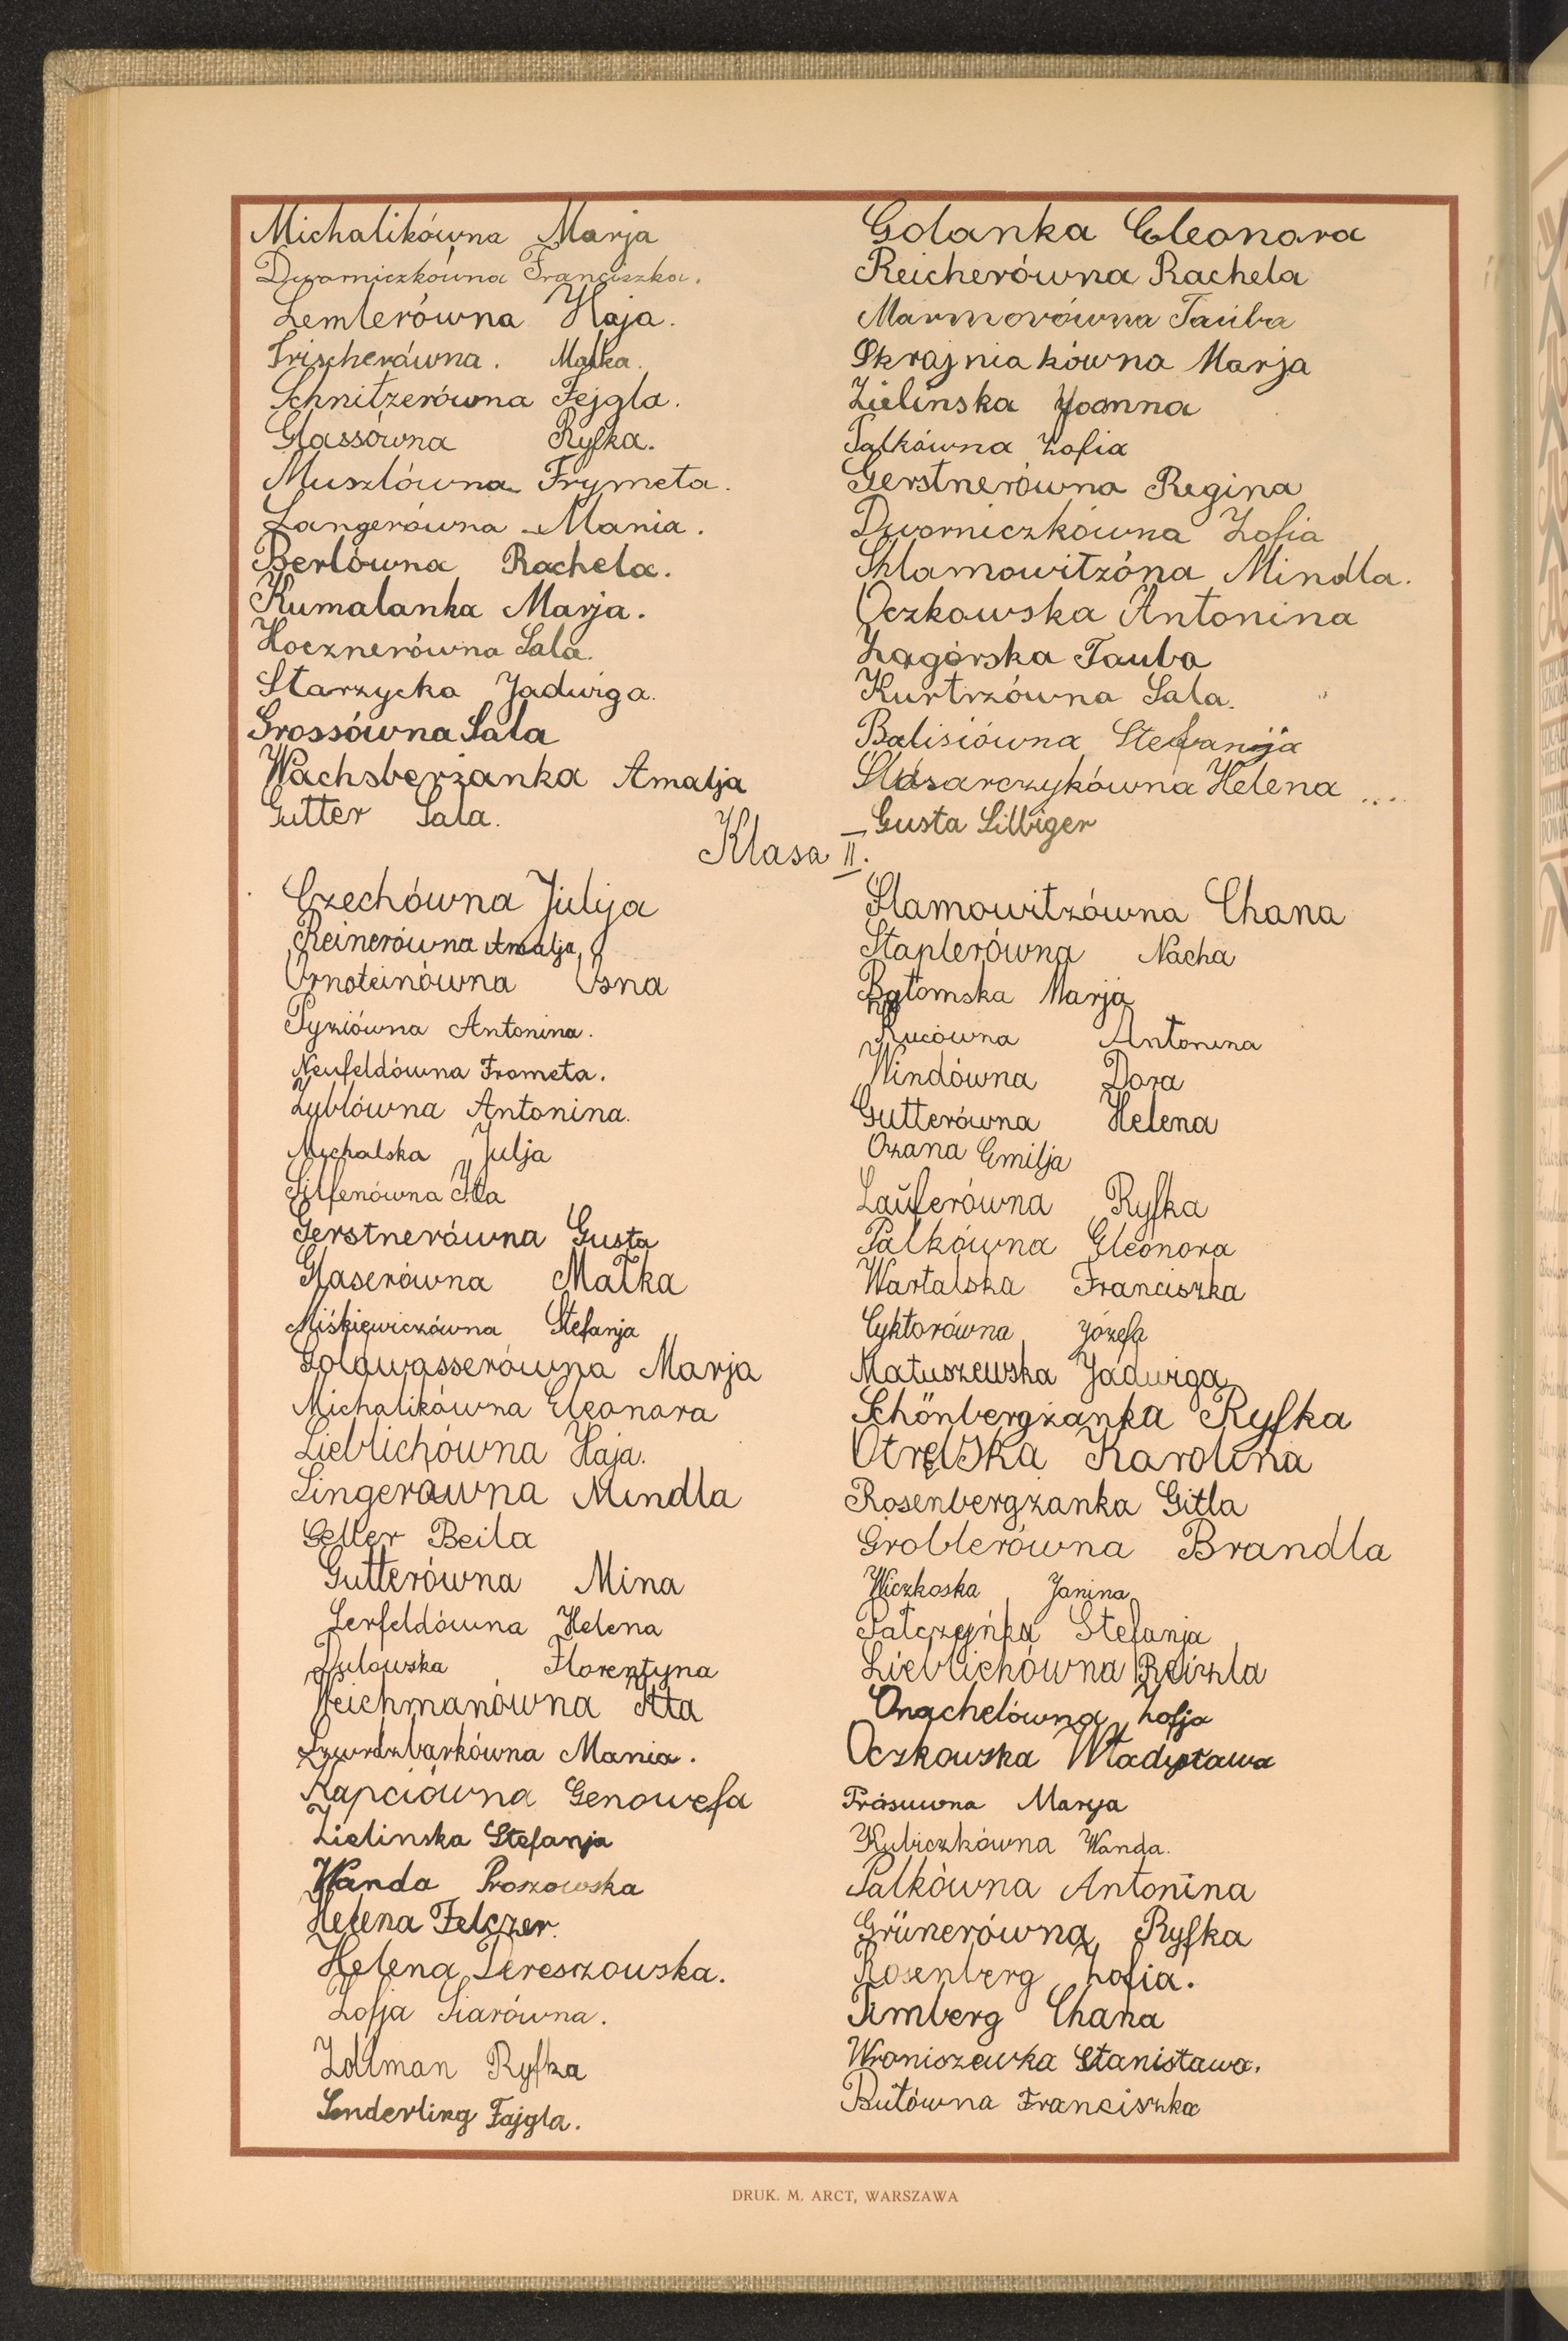 Michalikówna Marja
Dworniczkówna Franciszka.
Lemlerówna Haja.
Frischerówna. Malka.
Schnitzerówna Fejgla.
Glassówna Ryfka.
Muszlówna Frymeta.
Langerówna Mania.
Berlówna Rachela.
Kumalanka Marja.
Hocznerówna Sala.
Starzycka Jadwiga.
Grossówna Sala
Wachsberżanka Amalja
Gutter Sala.
Golanka Eleonora
Reicherówna Rachela
Marmorówna Tauba
Skrajniakówna Marja
Zielinska Joanna
Palkówna Zofia
Gerstnerówna Regina
Dworniczkówna Zofia
Shlamowitzóna Mindla.
Oczkowska Antonina
Zagórska Tauba
Kurtrzówna Sala.
Balisiówna Stefanija
Ślósarczykówna Helena ....
Gusta Silbiger
Klasa II.
Czechówna Julija
Reinerówna Amalja
Ornsteinówna Osna
Pyziówna Antonina.
Neufeldówna Frometa.
Zyblówna Antonina.
Michalska Julja
Silfenówna Ita
Gerstnerówna Gusta
Glaserówna Malka
Miśkiewiczówna Stefanja
Goldwasserówna Marja
Michalikówna Eleonora
Lieblichówna Haja.
Singerówna Mindla
Geller Beila
Gutterówna Mina
Lerfeldówna Helena
Dulowska Florentyna
Weichmanówna Itta
Szwrdzbarkówna Mania.
Kapciówna Genowefa
Zielinska Stefanja
Wanda Proszowska
Helena Felczer.
Helena Dereszowska.
Zofja Siarówna.
Zollman Ryfka
Senderling Fajgla.
Slamowitzówna Chana
Staplerówna Nacha
Bętomska Marja
Kucówna Antonina
Windówna Dora
Gutterówna Helena
Ozana Emilja
Lauferówna Ryfka
Palkówna Eleonora
Wartalska Franciszka
Cyktorówna Józefa
Matuszewska Jadwiga
Schönbergżanka Ryfka
Otrębska Karolina
Rosenbergżanka Gitla
Groblerówna Brandla
Wiczkoska Janina
Pałczyńka Stefanja
Lieblichówna Reizla
Ongchelówna Zofja
Oczkowska Władysława
Prósuwna Marya
Kubiczkówna Wanda.
Palkówna Antonina
Grünerówna Ryfka
Rosenberg Zofia.
Timberg Chana
Wroniszewka Stanisława.
Butówna Franciszka
DRUK. M. ARCT, WARSZAWA